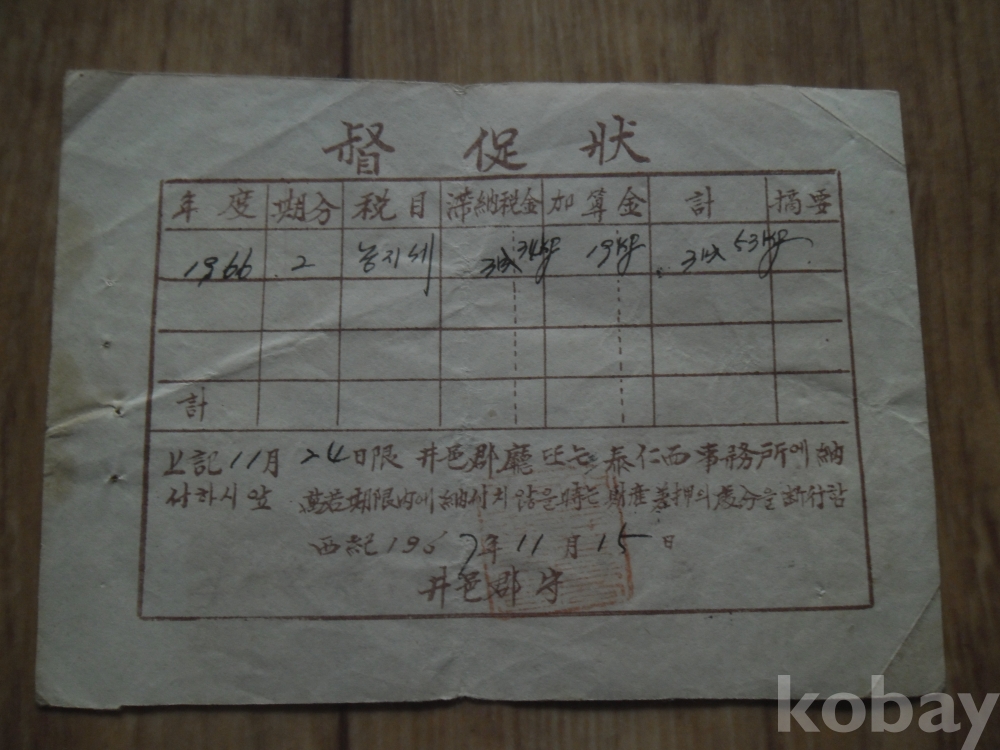 督促狀
年度 期分 税目 滞納税金 加算金 計 摘要
1966 2 농지세 34kg 19kg 53kg
計
上記 11月 24日限 井邑郡廳 또는 泰仁面事務所에 納
付하시압 萬若 期限內에 納付치 않을 時는 財産差押의 處分을 断行함
西紀 1967年 11月 15日
井邑郡守
kobay